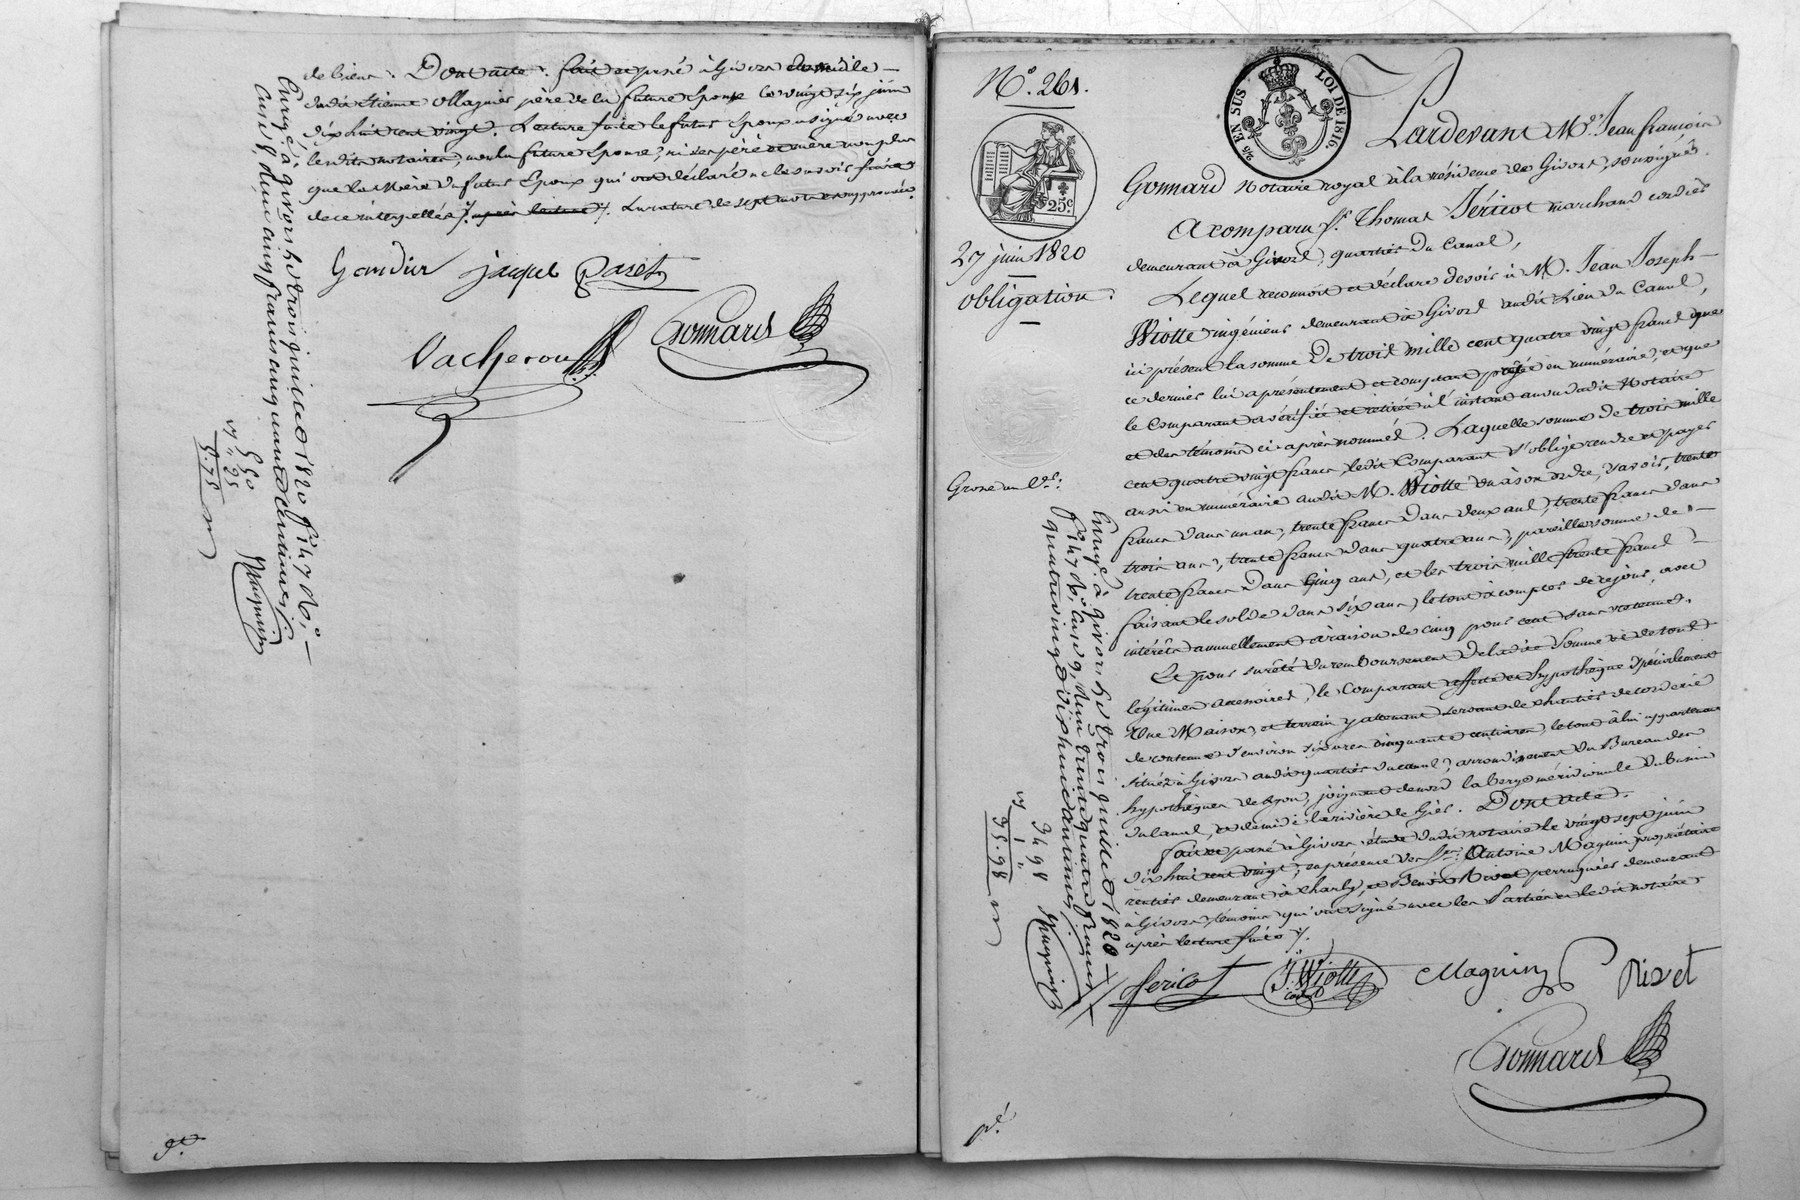 de biens. Dont acte. fait et passé à Givors
dudit Etienne Ollagnier père de la future Epouse le vingt six juin
dix huit cent vingt. Lecture faite le futur Epoux a signé avec
lesdits notaires, non la future Epouse, ni ses père et mère non plus
que la Mère du futur Epoux qui ont déclaré ne le savoir faire
de ce interpellés ./. après lecture ./. La rature de sept mots est approuvée.
Gondier jaque Pariet
Vacheron Gonnard
Enregé à givors le trois juillet 1820 fo 147 Vo Co
Cinq francs cinquante centimes
5 50
" 25
5.75
No. 261.
25c
EN SUS
LOI DE 1816.
27 juin 1820
obligation.
Grosse
Pardevant Me. Jean françois
Gonnard Notaire royal à la résidence de Givors, soussigné.
A comparu sr. Thomas Féricot marchand cordier
demeurant à Givors, quartier du Canal,
Lequel reconnoit et déclare devoir à M. Jean Joseph
Wiotte ingénieur demeurant à Givors audit Lieu du Canal,
ici présent la somme De trois mille cent quatre vingt francs que
ce dernier lui a présentement et comptant prêtée en numéraire, et que
le Comparant a vérifiée et retirée à l'instant au vu dudit Notaire
et des témoins ci après nommés. Laquelle somme de trois mille
cent quatre vingt francs ledit Comparant s'oblige rendre et payer
aussi en numéraire audit M. Wiotte ou à son ordre, savoir, trente
francs dans un an, trente francs Dans deux ans, trente francs dans
trois ans, trente francs dans quatre ans, pareille somme de
trente francs Dans Cinq ans, et les trois mille trente francs
faisant le solde dans six ans, le tout à compter de ce jour, avec
intérêts annuellement à raison de cinq pour cent sans retenue.
Et pour sûreté du remboursement de ladite somme et de tous
légitimes accessoires, le Comparant affecte et hypothèque spécialement
Une Maison, et terrain y attenant servant de chantier de corderie
de contenue d'environ six ares cinquante centiares, le tout à lui appartenant
situés à Givors audit quartier du canal, arrondissement du Bureau des
hypothèques de Lyon, joignant de nord la berge méridionale du bassin
du canal, et de midi la rivière de Gier. Dont acte.
fait et passé à Givors étude dudit notaire le vingt sept juin
dix huit cent vingt, en présence des Srs. Antoine Magnin propriétaire
rentier demeurant à Charly, et Benoît Rivet perruquier demeurant
à Givors, témoins qui ont signé avec les Parties et ledit notaire
après lecture faite ./.
Enregé à Givors le trois juillet 1820
fo 147 Vo trente quatre francs
quatre vingt dix huit centimes
34 98
1 "
35.98
fericot J. Wiotte Magnin Rivet
Gonnard